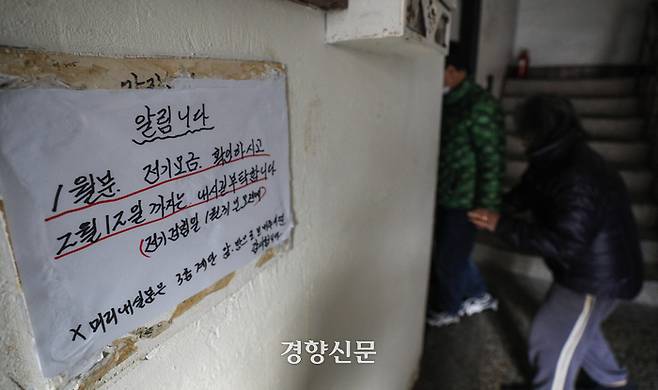 알립니다
1월분. 전기요금. 확인하시고
2월12일 까지는 내시길 부탁합니다
(전기검침일 1월31일 오전에)
× 미리내실분은 3층계단 앞.
경향신문